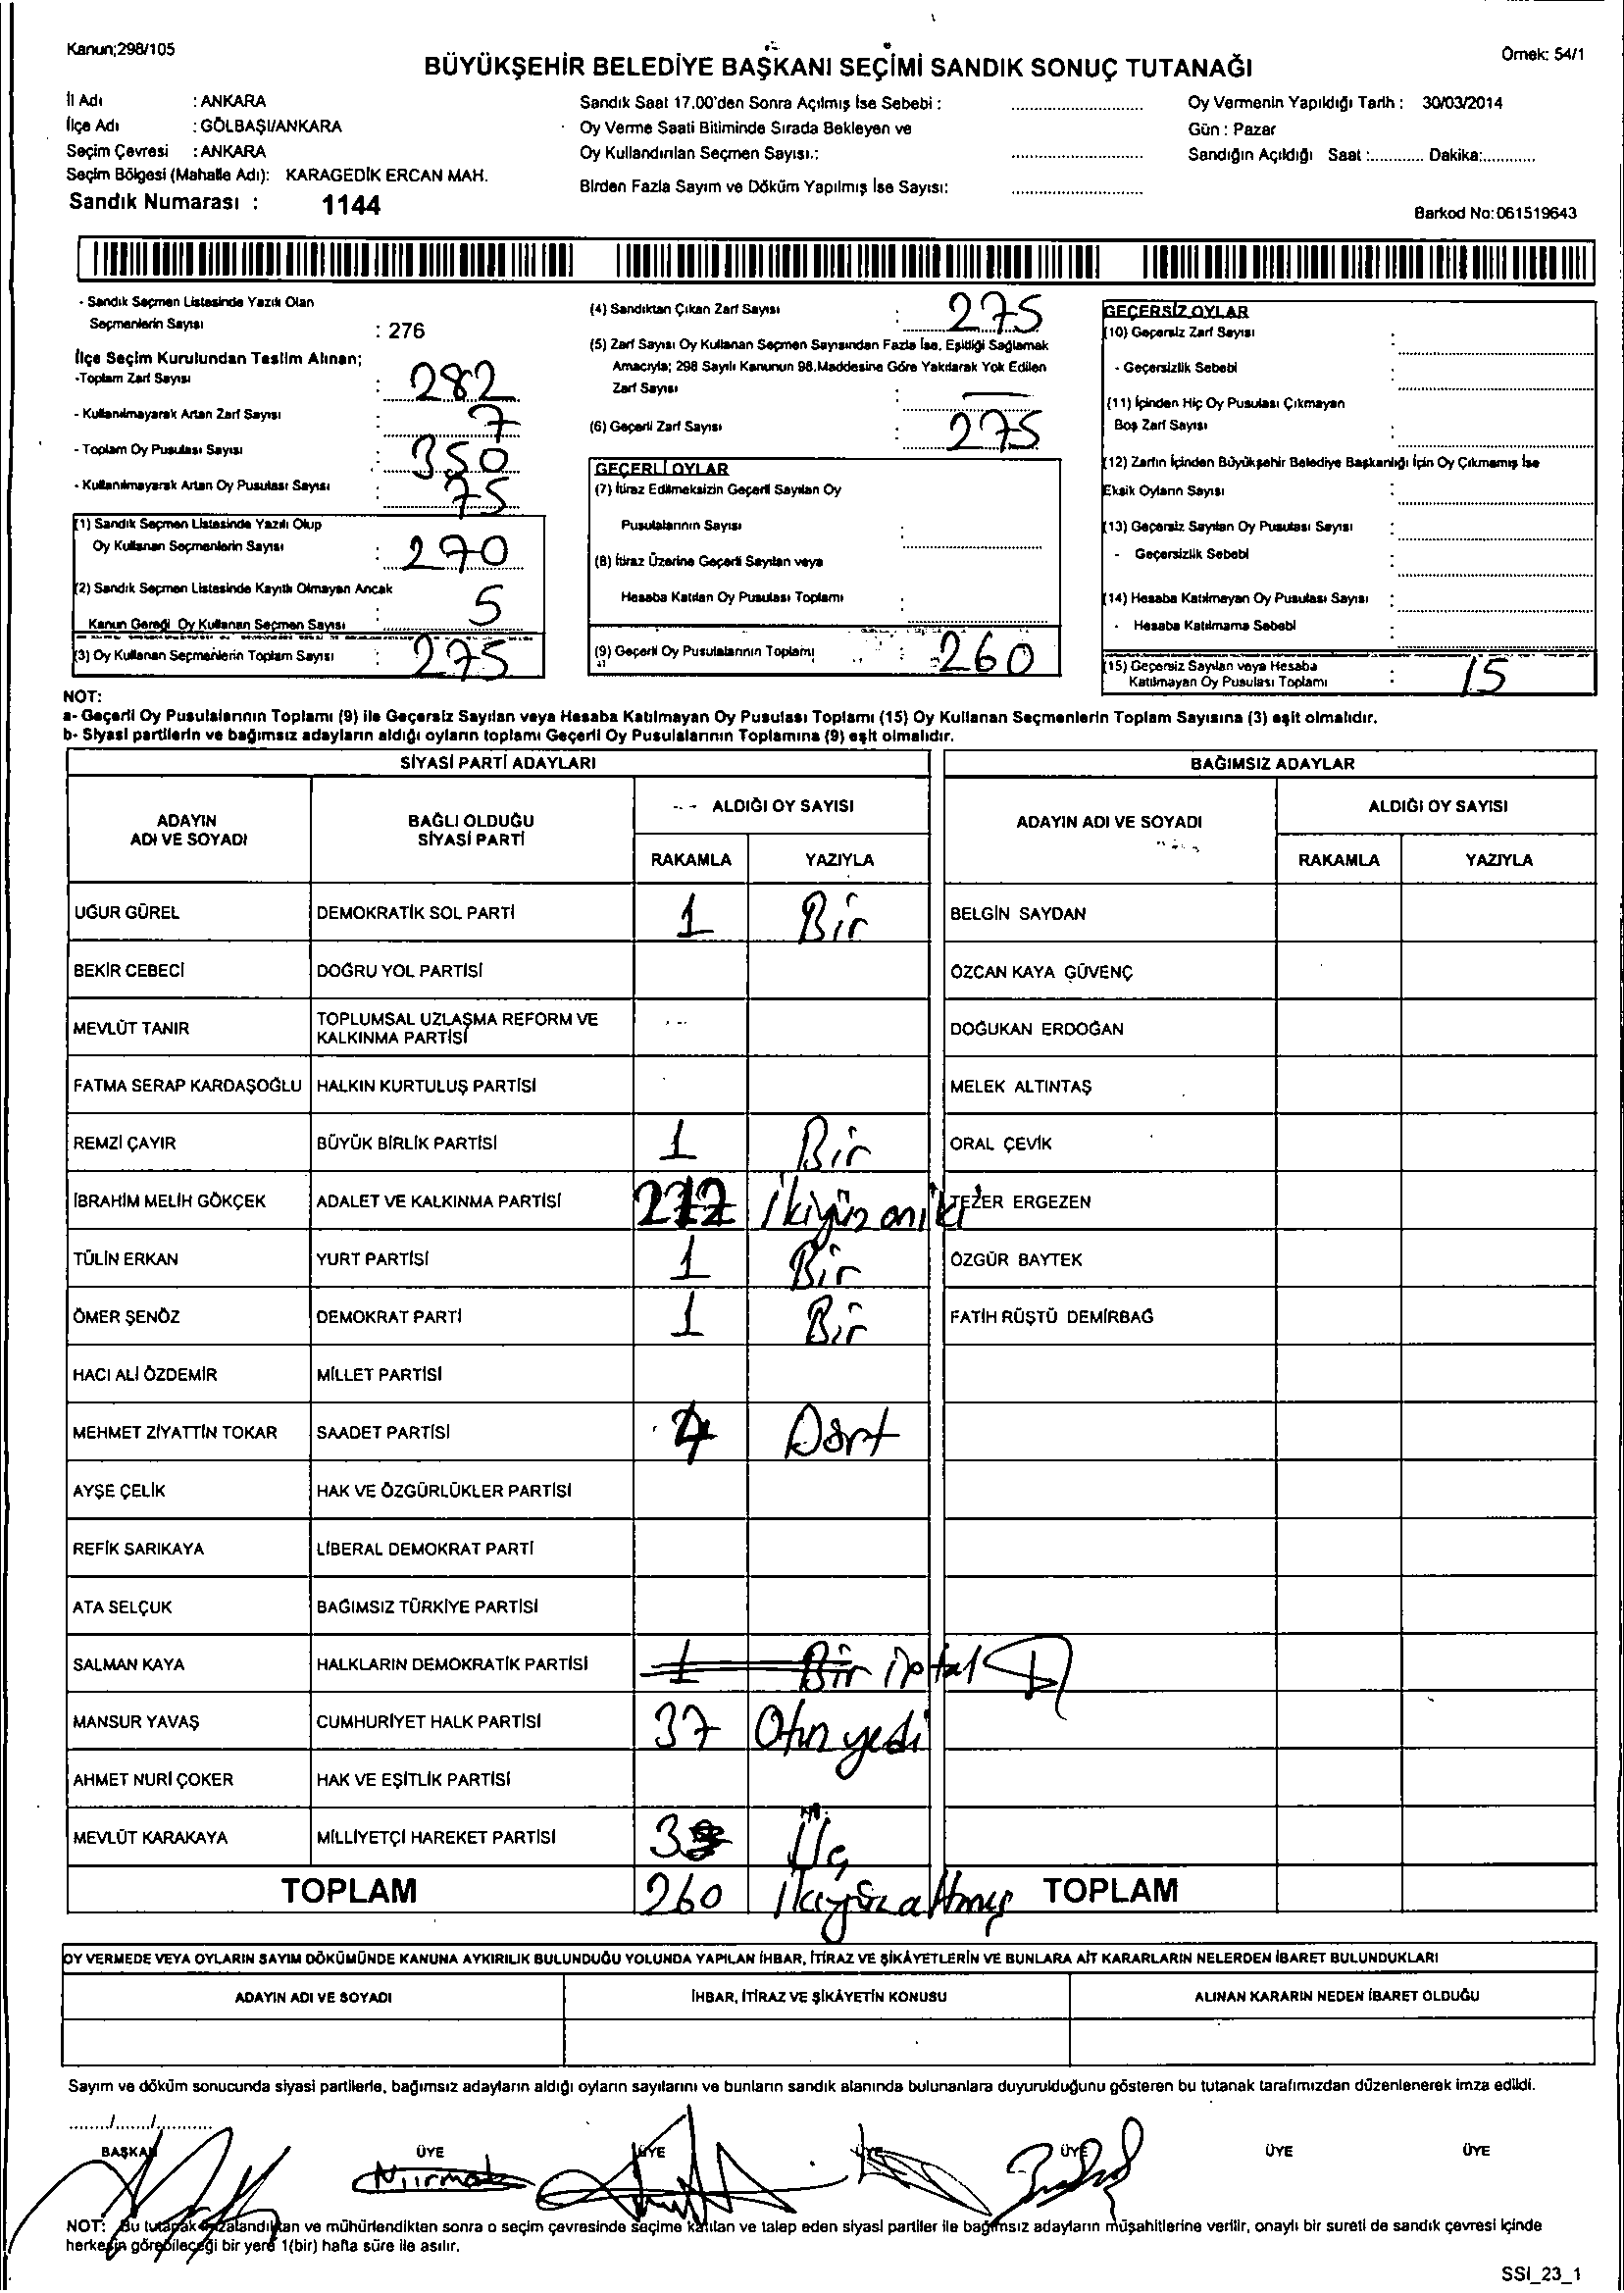 Kanun;298/105
Örnek: 54/1
BÜYÜKŞEHİR BELEDİYE BAŞKANI SEÇİMİ SANDIK SONUÇ TUTANAĞI
İl Adı : ANKARA
İlçe Adı : GÖLBAŞI/ANKARA
Seçim Çevresi : ANKARA
Seçim Bölgesi (Mahalle Adı): KARAGEDİK ERCAN MAH.
Sandık Numarası : 1144
Sandık Saat 17.00'den Sonra Açılmış İse Sebebi :
Oy Verme Saati Bitiminde Sırada Bekleyen ve
Oy Kullandırılan Seçmen Sayısı.:
Birden Fazla Sayım ve Döküm Yapılmış İse Sayısı:
Oy Vermenin Yapıldığı Tarih : 30/03/2014
Gün : Pazar
Sandığın Açıldığı Saat :............ Dakika:............
Barkod No:061519643
- Sandık Seçmen Listesinde Yazılı Olan
Seçmenlerin Sayısı : 276
İlçe Seçim Kurulundan Teslim Alınan;
-Toplam Zarf Sayısı : 282
- Kullanılmayarak Artan Zarf Sayısı : 7
- Toplam Oy Pusulası Sayısı : 350
- Kullanılmayarak Artan Oy Pusulası Sayısı : 75
(1) Sandık Seçmen Listesinde Yazılı Olup
Oy Kullanan Seçmenlerin Sayısı : 270
(2) Sandık Seçmen Listesinde Kayıtlı Olmayan Ancak
Kanun Gereği Oy Kullanan Seçmen Sayısı : 5
(3) Oy Kullanan Seçmenlerin Toplam Sayısı : 275
(4) Sandıktan Çıkan Zarf Sayısı : 275
(5) Zarf Sayısı Oy Kullanan Seçmen Sayısından Fazla İse, Eşitliği Sağlamak
Amacıyla; 298 Sayılı Kanunun 98.Maddesine Göre Yakılarak Yok Edilen
Zarf Sayısı : —
(6) Geçerli Zarf Sayısı : 275
GEÇERLİ OYLAR
(7) İtiraz Edilmeksizin Geçerli Sayılan Oy
Pusulalarının Sayısı :
(8) İtiraz Üzerine Geçerli Sayılan veya
Hesaba Katılan Oy Pusulası Toplamı :
(9) Geçerli Oy Pusulalarının Toplamı : 260
GEÇERSİZ OYLAR
(10) Geçersiz Zarf Sayısı :
- Geçersizlik Sebebi :
(11) İçinden Hiç Oy Pusulası Çıkmayan
Boş Zarf Sayısı :
(12) Zarfın İçinden Büyükşehir Belediye Başkanlığı İçin Oy Çıkmamış İse
Eksik Oyların Sayısı :
(13) Geçersiz Sayılan Oy Pusulası Sayısı :
- Geçersizlik Sebebi :
(14) Hesaba Katılmayan Oy Pusulası Sayısı :
- Hesaba Katılmama Sebebi :
(15) Geçersiz Sayılan veya Hesaba
Katılmayan Oy Pusulası Toplamı : 15
NOT:
a- Geçerli Oy Pusulalarının Toplamı (9) ile Geçersiz Sayılan veya Hesaba Katılmayan Oy Pusulası Toplamı (15) Oy Kullanan Seçmenlerin Toplam Sayısına (3) eşit olmalıdır.
b- Siyasi partilerin ve bağımsız adayların aldığı oyların toplamı Geçerli Oy Pusulalarının Toplamına (9) eşit olmalıdır.
SİYASİ PARTİ ADAYLARI
ADAYIN ADI VE SOYADI
BAĞLI OLDUĞU SİYASİ PARTİ
ALDIĞI OY SAYISI
RAKAMLA YAZIYLA
UĞUR GÜREL DEMOKRATİK SOL PARTİ 1 Bir
BEKİR CEBECİ DOĞRU YOL PARTİSİ
MEVLÜT TANIR TOPLUMSAL UZLAŞMA REFORM VE KALKINMA PARTİSİ
FATMA SERAP KARDAŞOĞLU HALKIN KURTULUŞ PARTİSİ
REMZİ ÇAYIR BÜYÜK BİRLİK PARTİSİ 1 Bir
İBRAHİM MELİH GÖKÇEK ADALET VE KALKINMA PARTİSİ 212 İkiyüz oniki
TÜLİN ERKAN YURT PARTİSİ 1 Bir
ÖMER ŞENÖZ DEMOKRAT PARTİ 1 Bir
HACI ALİ ÖZDEMİR MİLLET PARTİSİ
MEHMET ZİYATTİN TOKAR SAADET PARTİSİ 4 Dört
AYŞE ÇELİK HAK VE ÖZGÜRLÜKLER PARTİSİ
REFİK SARIKAYA LİBERAL DEMOKRAT PARTİ
ATA SELÇUK BAĞIMSIZ TÜRKİYE PARTİSİ
SALMAN KAYA HALKLARIN DEMOKRATİK PARTİSİ 1 Bir iptal
MANSUR YAVAŞ CUMHURİYET HALK PARTİSİ 37 Otuzyedi
AHMET NURİ ÇOKER HAK VE EŞİTLİK PARTİSİ
MEVLÜT KARAKAYA MİLLİYETÇİ HAREKET PARTİSİ 3 Üç
TOPLAM 260 İkiyüzaltmış
BAĞIMSIZ ADAYLAR
ADAYIN ADI VE SOYADI
ALDIĞI OY SAYISI
RAKAMLA YAZIYLA
BELGİN SAYDAN
ÖZCAN KAYA GÜVENÇ
DOĞUKAN ERDOĞAN
MELEK ALTINTAŞ
ORAL ÇEVİK
TEZER ERGEZEN
ÖZGÜR BAYTEK
FATİH RÜŞTÜ DEMİRBAĞ
TOPLAM
OY VERMEDE VEYA OYLARIN SAYIM DÖKÜMÜNDE KANUNA AYKIRILIK BULUNDUĞU YOLUNDA YAPILAN İHBAR, İTİRAZ VE ŞİKÂYETLERİN VE BUNLARA AİT KARARLARIN NELERDEN İBARET BULUNDUKLARI
ADAYIN ADI VE SOYADI İHBAR, İTİRAZ VE ŞİKÂYETİN KONUSU ALINAN KARARIN NEDEN İBARET OLDUĞU
Sayım ve döküm sonucunda siyasi partilerle, bağımsız adayların aldığı oyların sayılarını ve bunların sandık alanında bulunanlara duyurulduğunu gösteren bu tutanak tarafımızdan düzenlenerek imza edildi.
......../......../............
BAŞKAN ÜYE ÜYE ÜYE ÜYE ÜYE ÜYE
NOT: Bu tutanak imzalandıktan ve mühürlendikten sonra o seçim çevresinde seçime katılan ve talep eden siyasi partiler ile bağımsız adayların müşahitlerine verilir, onaylı bir sureti de sandık çevresi içinde
herkesin görebileceği bir yere 1(bir) hafta süre ile asılır.
SSI_23_1